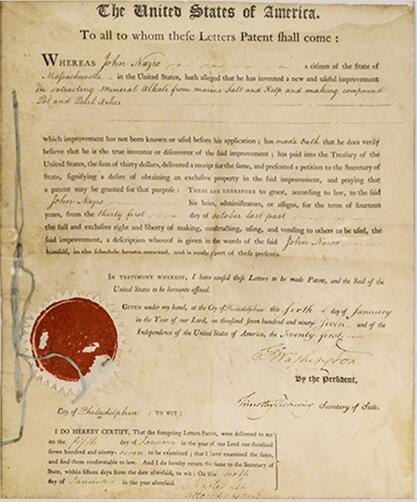 The United States of America.
To all to whom these Letters Patent shall come :
WHEREAS John Nazro a citizen of the State of
Massachusetts in the United States, hath alleged that he has invented a new and useful improvement
in extracting Mineral Alkali from marine Salt and Kelp and making compound
Pot and Pearl Ashes
which improvement has not been known or used before his application ; has made Oath that he does verily
believe that he is the true inventor or discoverer of the said improvement ; has paid into the Treasury of the
United States, the sum of thirty dollars, delivered a receipt for the same, and presented a petition to the Secretary
of State, signifying a desire of obtaining an exclusive property in the said improvement, and praying that
a patent may be granted for that purpose : THESE ARE THEREFORE to grant, according to law, to the said
John Nazro his heirs, administrators, or assigns, for the term of fourteen
years, from the thirty first day of October last past
the full and exclusive right and liberty of making, constructing, using, and vending to others to be used, the
said improvement, a description whereof is given in the words of the said John Nazro
himself, in the schedule hereto annexed, and is made part of these presents.
IN TESTIMONY WHEREOF, I have caused these Letters to be made Patent, and the Seal of the
United States to be hereunto affixed.
GIVEN under my hand, at the City of Philadelphia this sixth day of January
in the Year of our Lord, one thousand seven hundred and ninety seven and of the
Independence of the United States of America, the Twenty first
G. Washington
By the President,
Timothy Pickering Secretary of State.
City of Philadelphia : TO WIT :
I DO HEREBY CERTIFY, That the foregoing Letters Patent, were delivered to me
on the fifth day of January in the year of our Lord one thousand
seven hundred and ninety-seven to be examined ; that I have examined the same,
and find them conformable to law. And I do hereby return the same to the Secretary of
State, within fifteen days from the date aforesaid, to wit : On this sixth
day of January in the year aforesaid.
Charles Lee